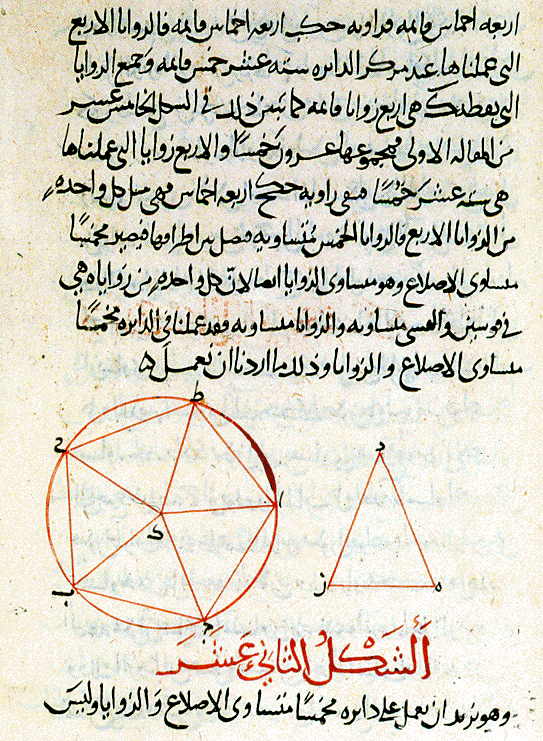 اربعه اخماس قائمه فزاويه حكب اربعه اخماس قائمه فالزوايا الاربع
التى عملناها عند مركز الدائره سته عشر خمس قائمه وجميع الزوايا
التى بنقطة ك هى اربع زوايا قائمه كما تبين ذلك فى الشكل الخامس عشر
من المقاله الاولى فمجموعها عشرون خمسًا والاربع زوايا التى عملناها
هى سته عشر خمسًا فتبقى زاويه حكح اربعه اخماس فهى مثل كل واحده
من الزوايا الاربع فالزوايا الخمس مُتساويه فصل بين اطرافها فيصير مخمسًا
متساوى الاضلاع وهو متساوى الزوايا ايضا لان كل واحده من زواياه هى
فى قوسين والقسى متساويه والزوايا متساويه فقد عملنا فى الدائره مخمسًا
متساوى الاضلاع والزوايا وذلك ما اردنا ان نعمل ه
ط
د
ح
ا
ك
ز
ه
ب
ج
اَلشَّكلُ الثانى عَشَرَ
وهو نريد ان نعمل على دائره مخمسًا متساوى الاضلاع والزوايا وليس